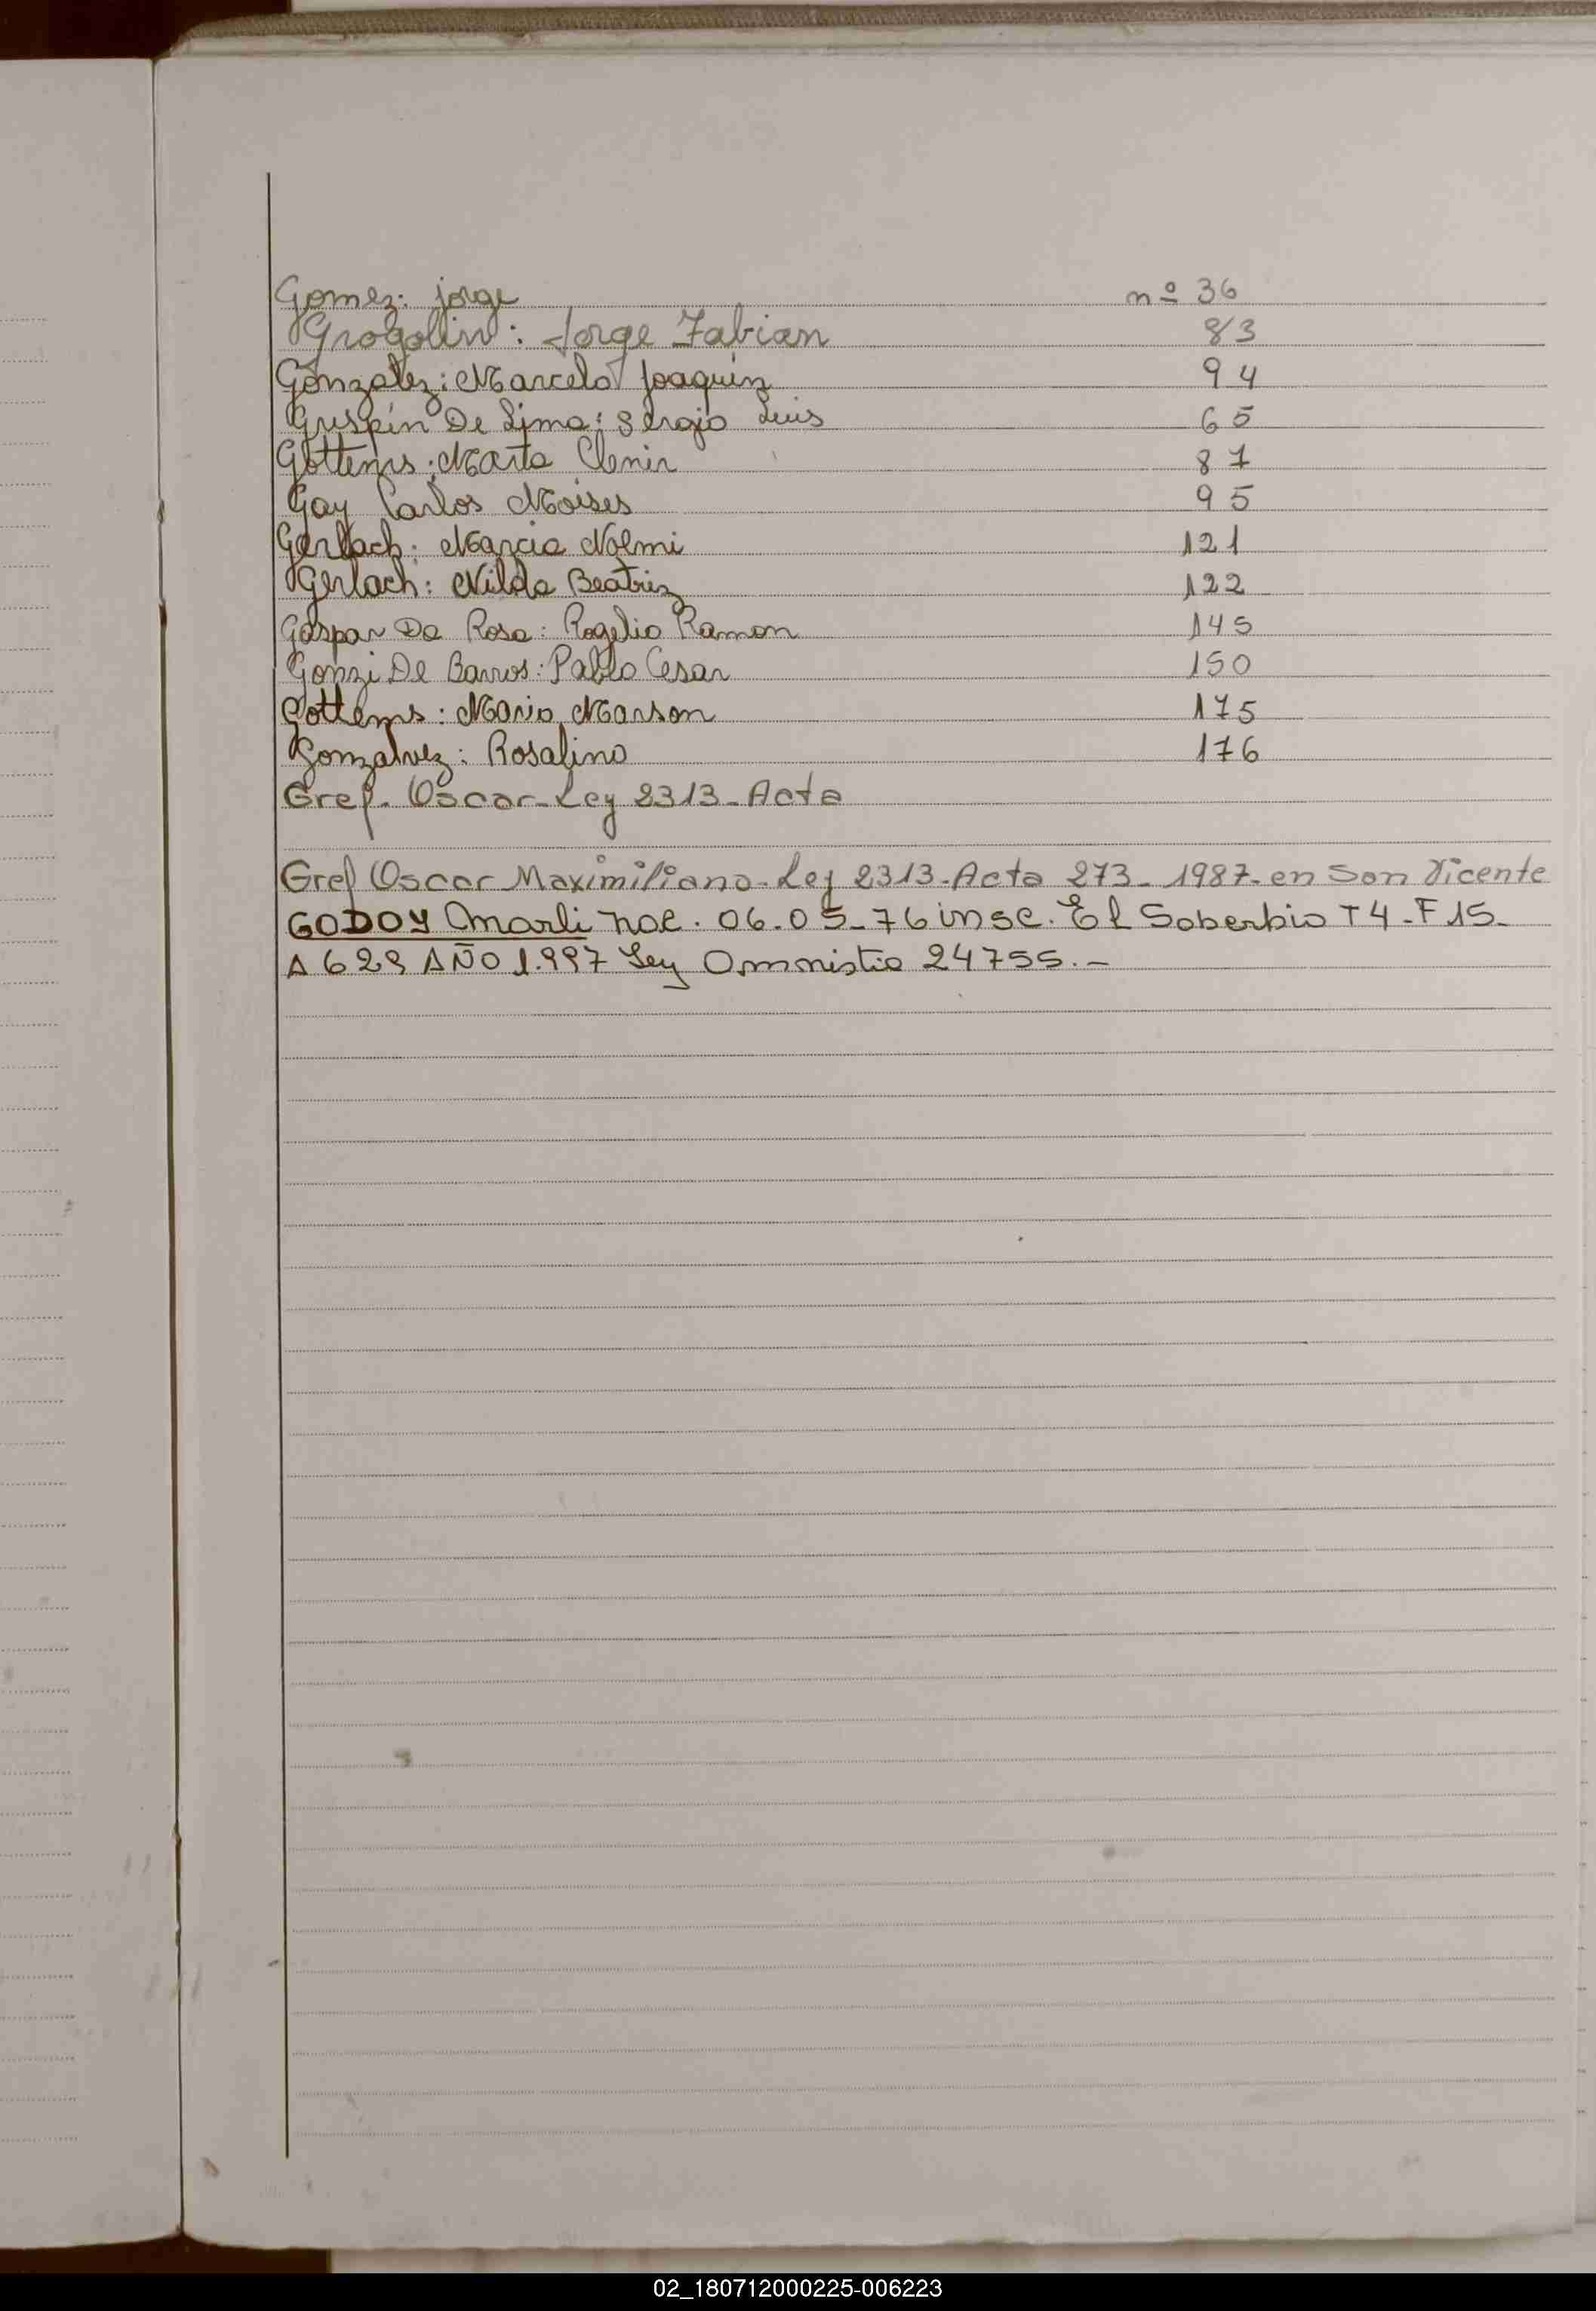 Gomez: jorge nº 36
Grogolin: Jorge Fabian 83
Gonzalez: Marcelo Joaquin 94
Guspin De Lima: Sergio Luis 65
Gottems: Marta Clenir 87
Gay Carlos Moises 95
Gerlach: Marcia Noemi 121
Gerlach: Nilda Beatriz 122
Gaspar Da Rosa: Rogelio Ramon 145
Gonzi De Barros: Pablo Cesar 150
Gottems: Mario Marson 175
Gonzalvez: Rosalino 176
Gref. Oscar-Ley 2313-Acta
Gref Oscar Maximiliano-Ley 2313-Acta 273-1987-en San Vicente
GODOY Marli nac. 06.05-76 insc. El Soberbio T4-F15-
A 629 AÑO 1.997 Ley Omnistia 24755.-
02_180712000225-006223